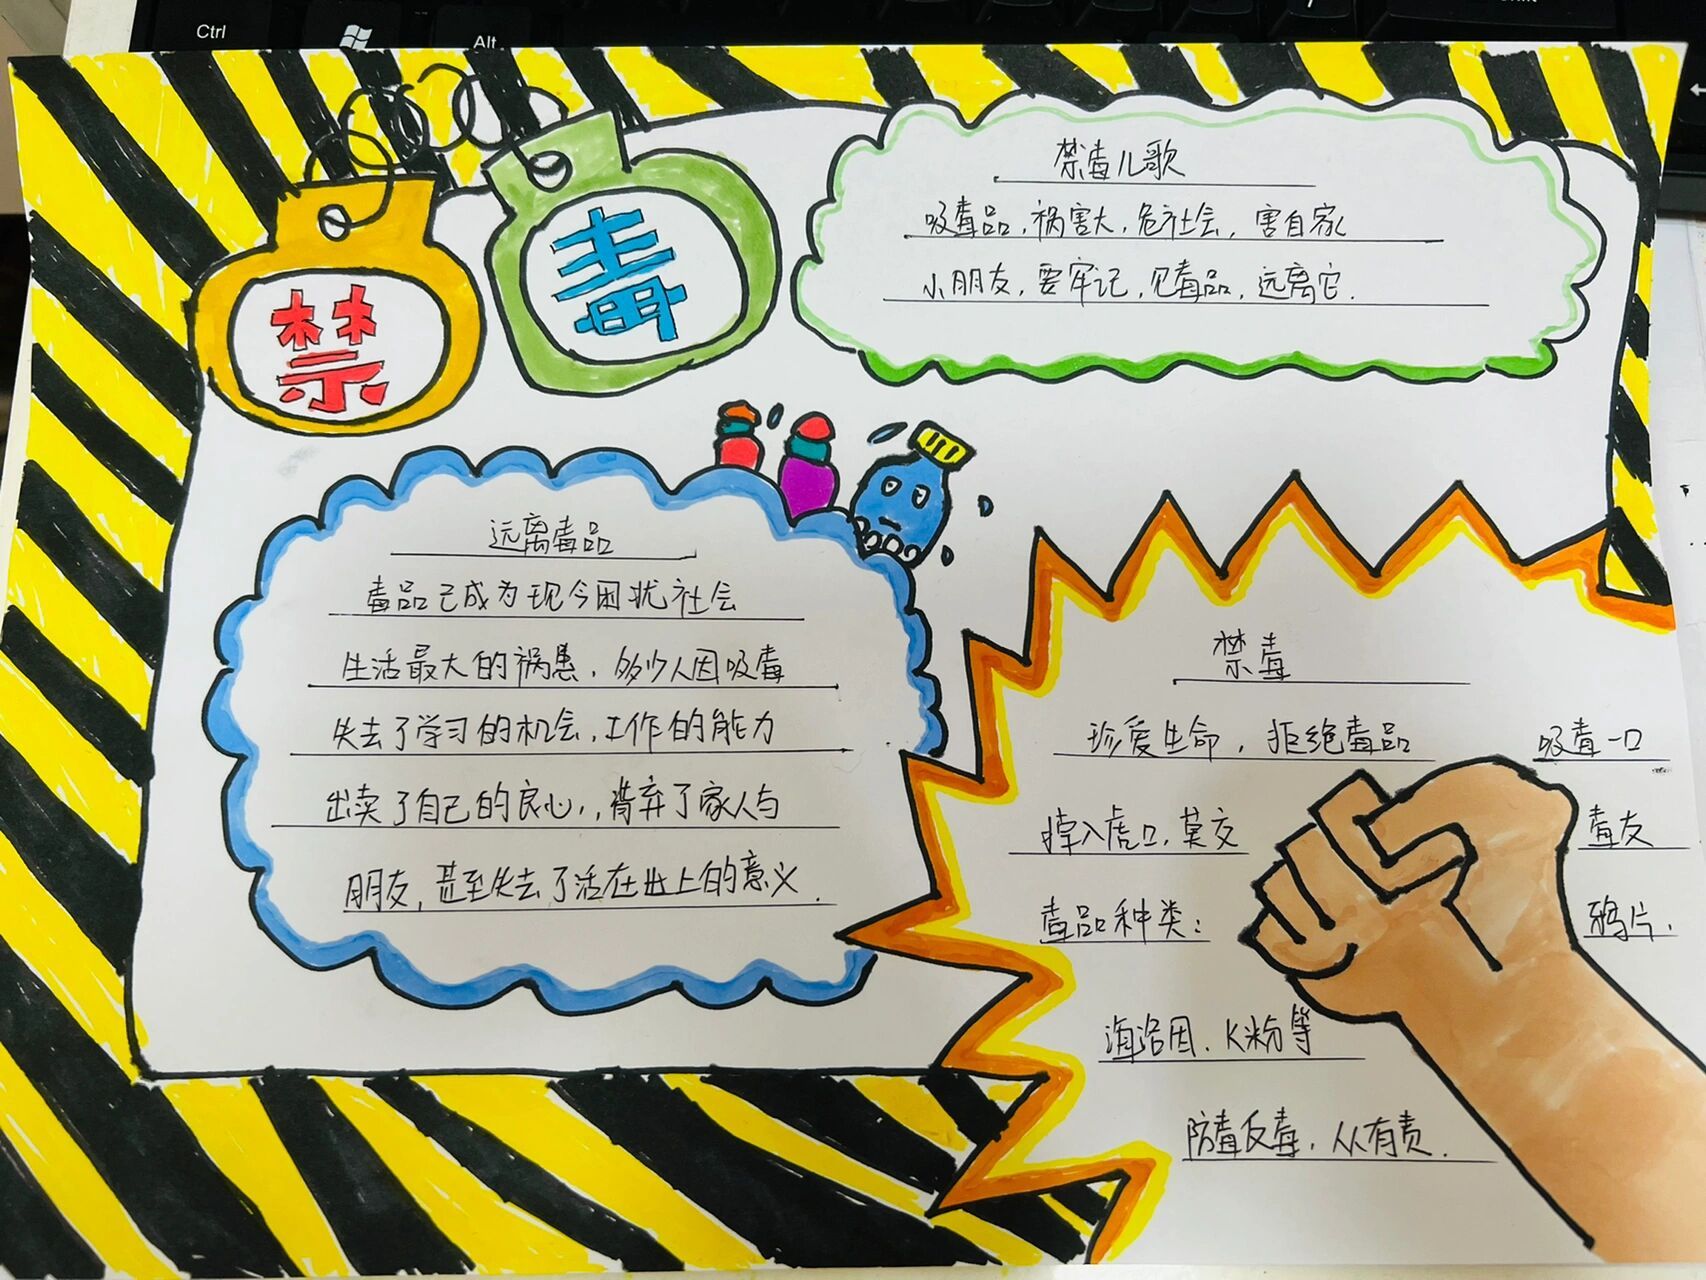 Ctrl
Alt
禁毒
禁毒儿歌
吸毒品，祸害大，危社会，害自家
小朋友，要牢记，见毒品，远离它.
远离毒品
毒品已成为现今困扰社会
生活最大的祸患，多少人因吸毒
失去了学习的机会，工作的能力
出卖了自己的良心，，背弃了家人与
朋友，甚至失去了活在世上的意义.
禁毒
珍爱生命，拒绝毒品 吸毒一口
掉入虎口，莫交 毒友
毒品种类： 鸦片.
海洛因.K粉等
防毒反毒，从有责.